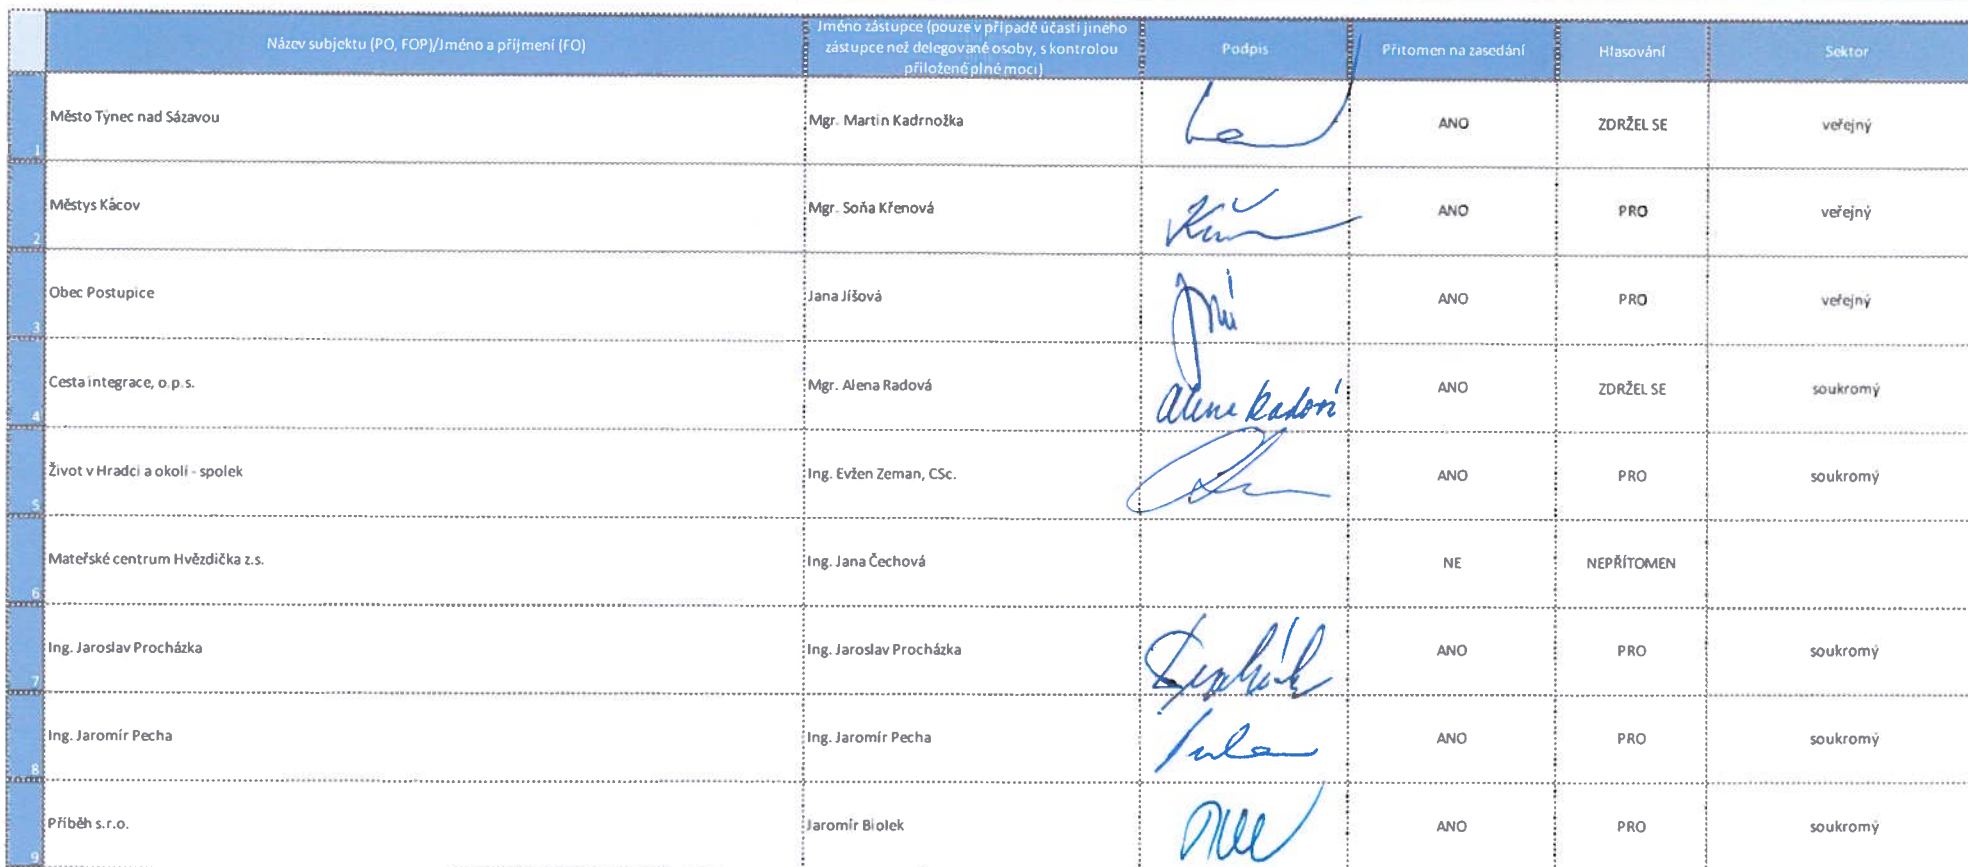 Název subjektu (PO, FOP)/Jméno a příjmení (FO)
Jméno zástupce (pouze v případě účasti jiného
zástupce než delegované osoby, s kontrolou
přiložené plné moci)
Podpis
Přítomen na zasedání
Hlasování
Sektor
1 Město Týnec nad Sázavou Mgr. Martin Kadrnožka ANO ZDRŽEL SE veřejný
2 Městys Kácov Mgr. Soňa Křenová ANO PRO veřejný
3 Obec Postupice Jana Jíšová ANO PRO veřejný
4 Cesta integrace, o.p.s. Mgr. Alena Radová Alena Radová ANO ZDRŽEL SE soukromý
5 Život v Hradci a okolí - spolek Ing. Evžen Zeman, CSc. ANO PRO soukromý
6 Mateřské centrum Hvězdička z.s. Ing. Jana Čechová NE NEPŘÍTOMEN
7 Ing. Jaroslav Procházka Ing. Jaroslav Procházka ANO PRO soukromý
8 Ing. Jaromír Pecha Ing. Jaromír Pecha ANO PRO soukromý
9 Příběh s.r.o. Jaromír Biolek ANO PRO soukromý